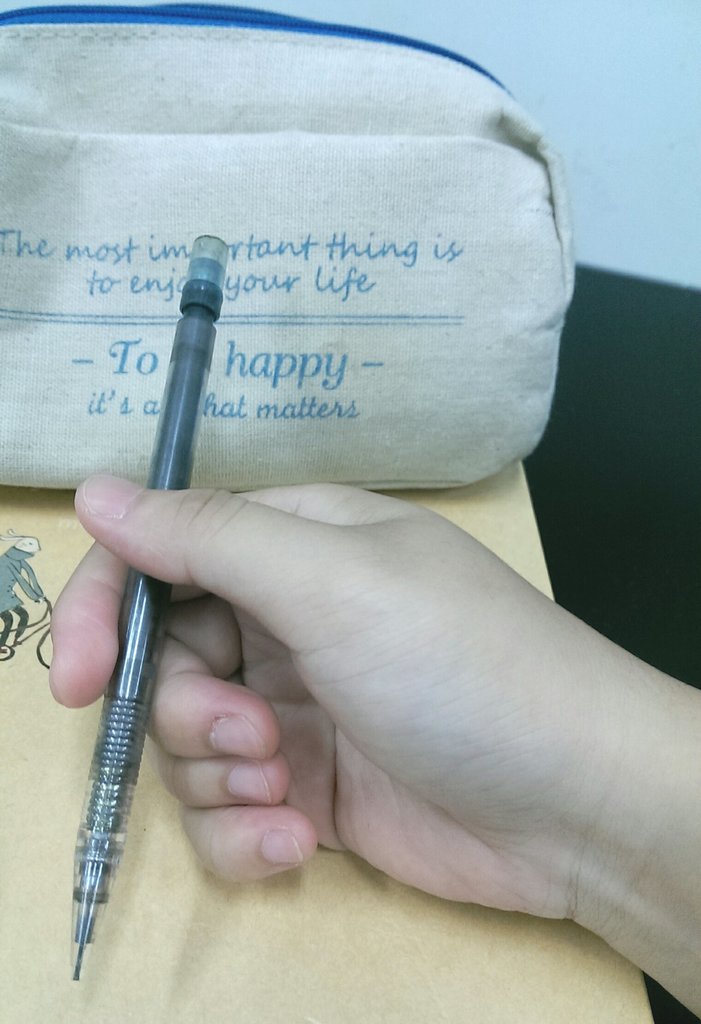 The most important thing is
to enjoy your life
- To happy -
it's a hat matters